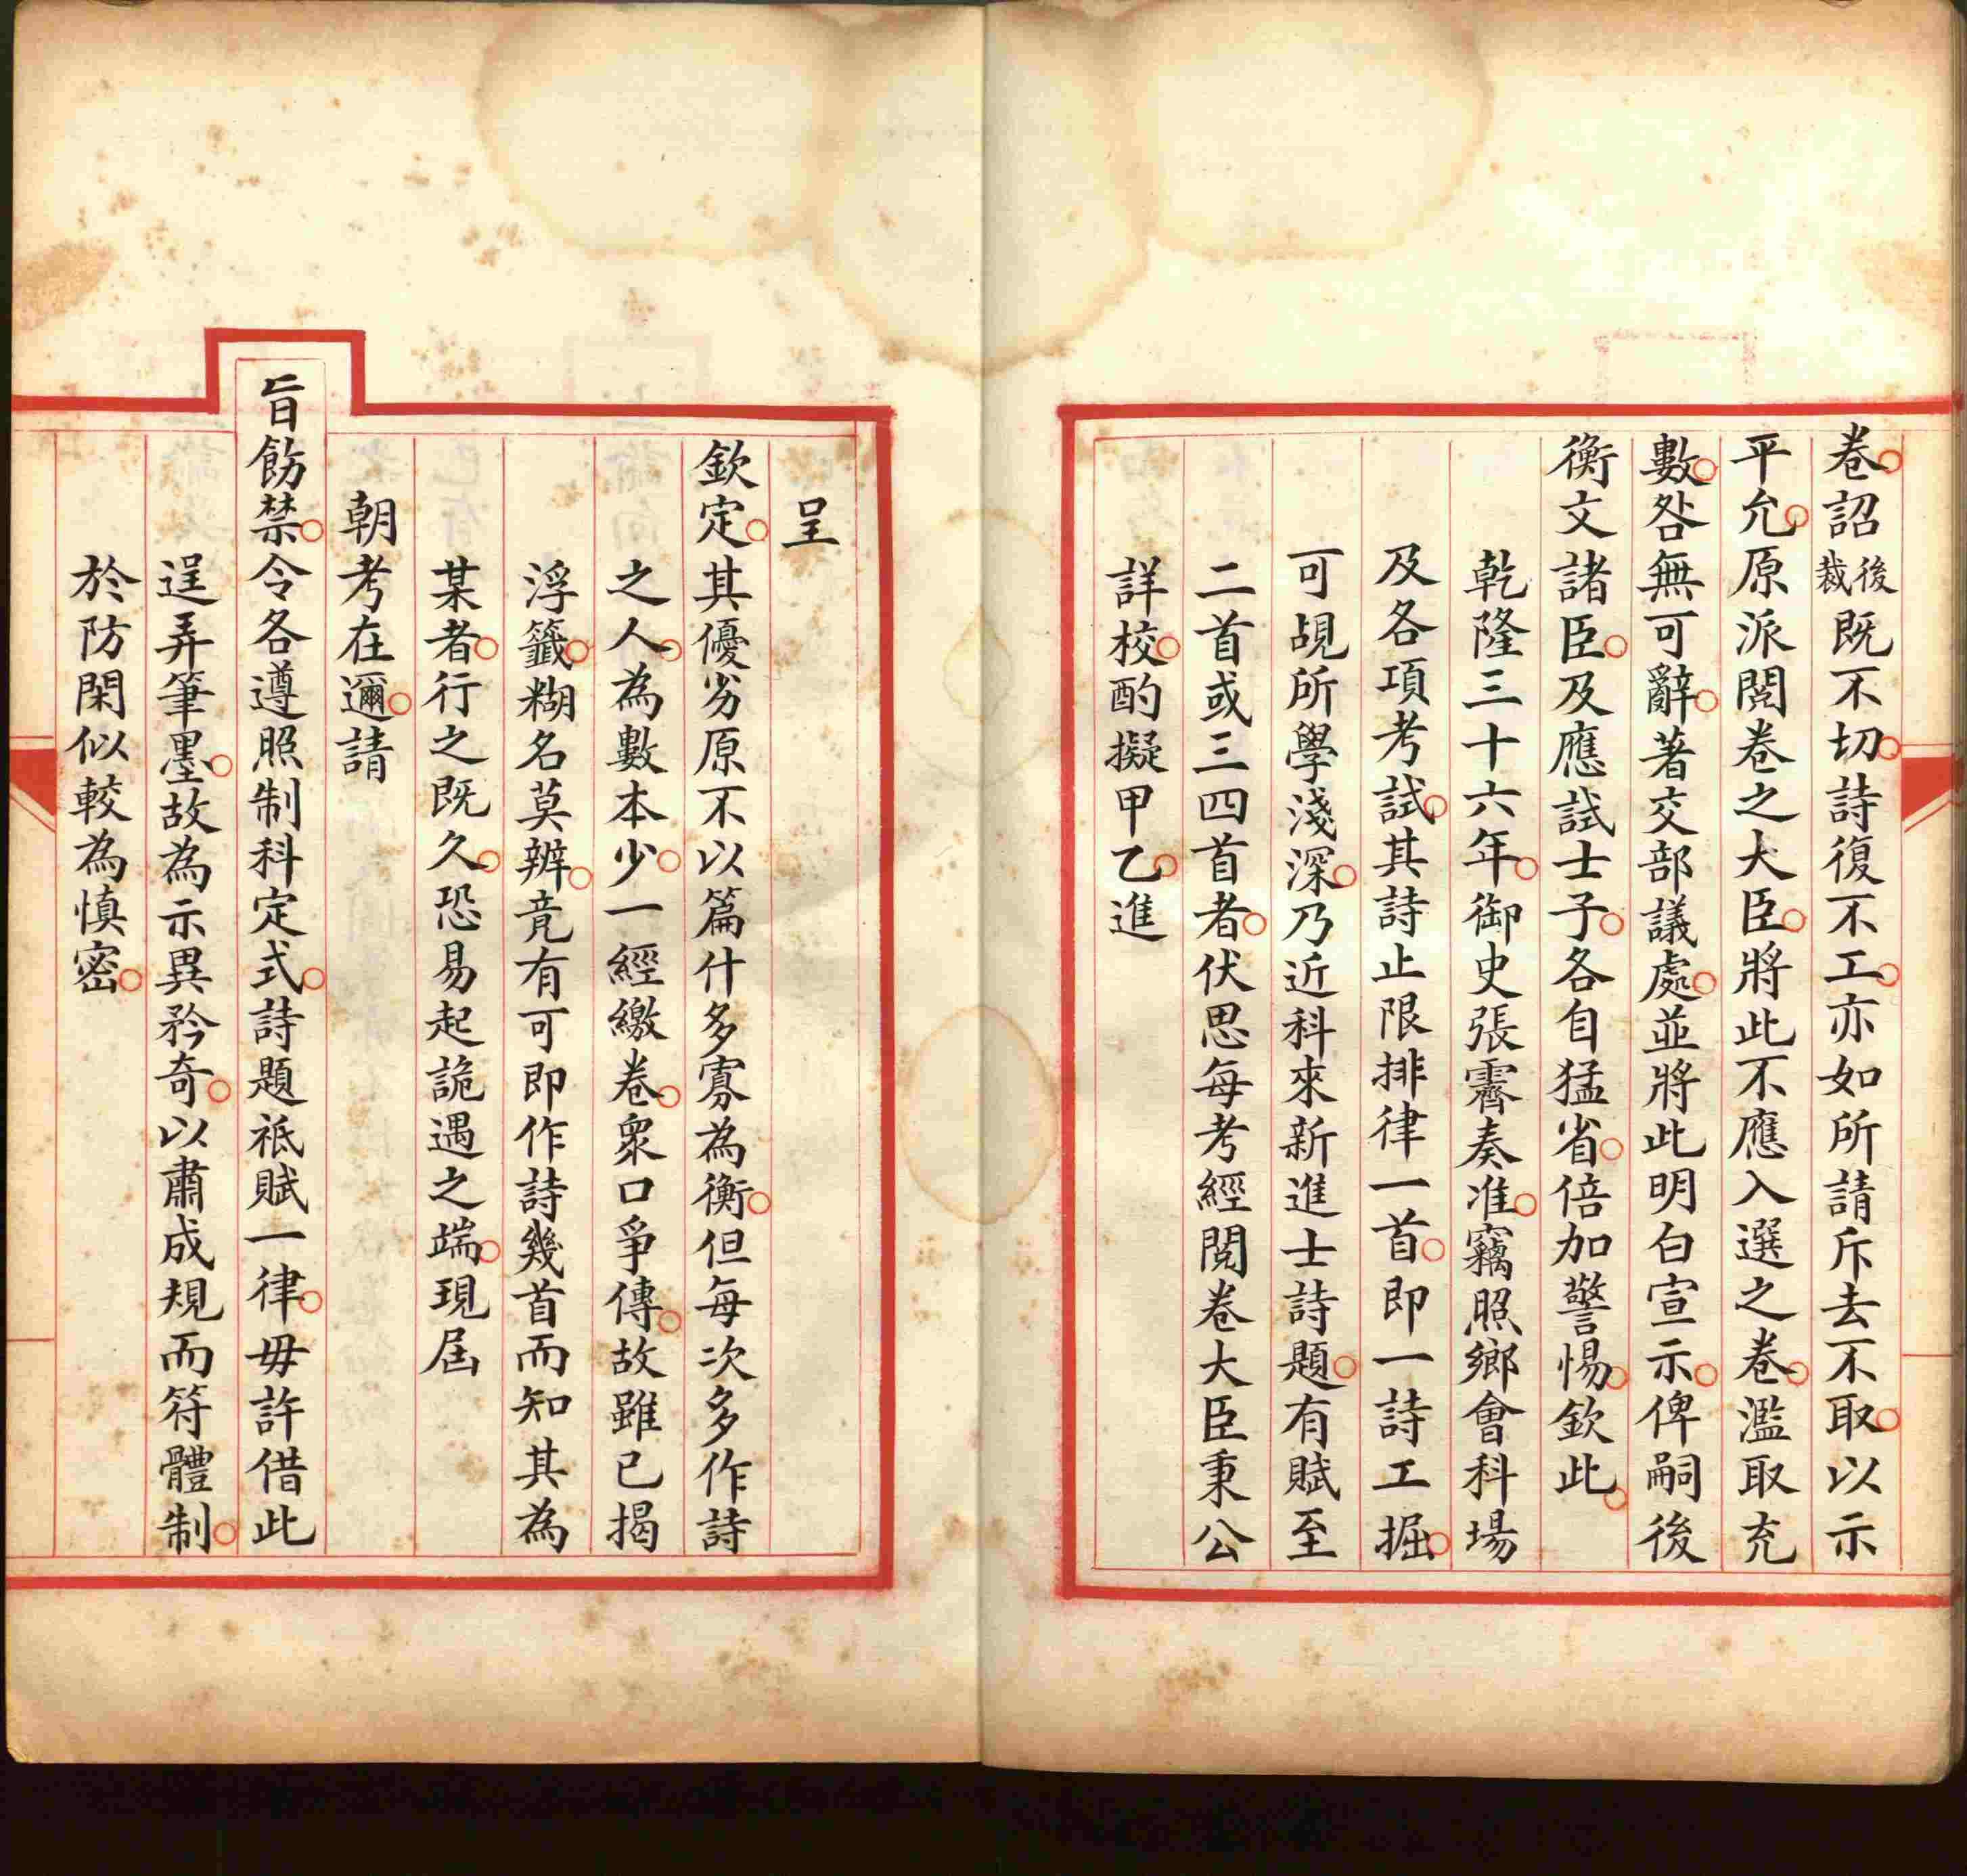 卷詔後裁既不切詩復不工亦如所請斥去不取以示
平允原派閱卷之大臣將此不應入選之卷濫取充
數咎無可辭著交部議處並將此明白宣示俾嗣後
衡文諸臣及應試士子各自猛省倍加警惕欽此
乾隆三十六年御史張霽奏准竊照鄉會科場
及各項考試其詩止限排律一首即一詩工掘
可覘所學淺深乃近科來新進士詩題有賦至
二首或三四首者伏思每考經閱卷大臣秉公
詳校酌擬甲乙進
呈
欽定其優劣原不以篇什多寡為衡但每次多作詩
之人為數本少一經繳卷衆口爭傳故雖已揭
浮籤糊名莫辨竟有可即作詩幾首而知其為
某者行之既久恐易起詭遇之端現屆
朝考在邇請
旨飭禁令各遵照制科定式詩題祇賦一律毋許借此
逞弄筆墨故為示異矜奇以肅成規而符體制
於防閑似較為慎密